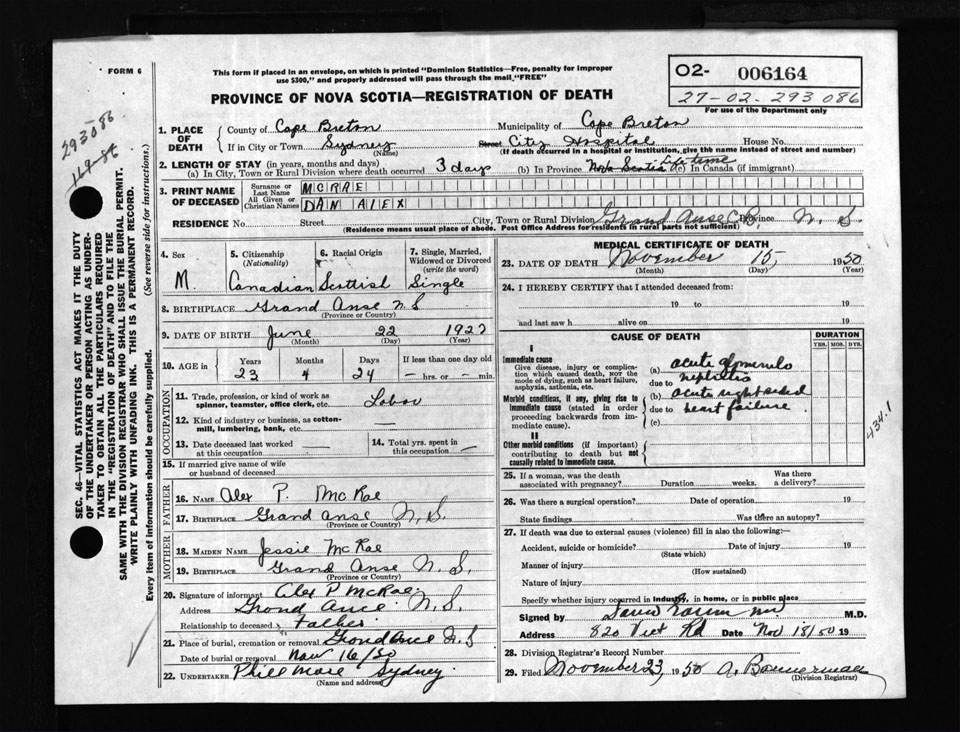 FORM 6
This form if placed in an envelope, on which is printed "Dominion Statistics—Free, penalty for improper
use $300," and properly addressed will pass through the mail, "FREE"
O2- 006164
27-02-293086
For use of the Department only
PROVINCE OF NOVA SCOTIA—REGISTRATION OF DEATH
293086
SEC. 46—VITAL STATISTICS ACT MAKES IT THE DUTY
OF THE UNDERTAKER OR PERSON ACTING AS UNDER-
TAKER TO OBTAIN ALL THE PARTICULARS REQUIRED
IN THE "REGISTRATION OF DEATH" AND TO FILE THE
SAME WITH THE DIVISION REGISTRAR WHO SHALL ISSUE THE BURIAL PERMIT.
WRITE PLAINLY WITH UNFADING INK. THIS IS A PERMANENT RECORD.
Every item of information should be carefully supplied. (See reverse side for instructions.)
1. PLACE OF DEATH
County of Cape Breton Municipality of Cape Breton
If in City or Town Sydney (Name) Street City Hospital House No.
(If death occurred in a hospital or institution, give the name instead of street and number)
2. LENGTH OF STAY (in years, months and days)
(a) In City, Town or Rural Division where death occurred 3 days (b) In Province Nova Scotia Lifetime (c) In Canada (if immigrant)
3. PRINT NAME OF DECEASED
Surname or Last Name MCRAE
All Given or Christian Names DAN ALEX
RESIDENCE No. Street City, Town or Rural Division Grand Anse C.B. Province N. S.
(Residence means usual place of abode. Post Office Address for Residents in rural parts not sufficient)
4. Sex M.
5. Citizenship (Nationality) Canadian
6. Racial Origin Scottish
7. Single, Married, Widowed or Divorced (write the word) Single
8. BIRTHPLACE Grand Anse N.S
(Province or Country)
9. DATE OF BIRTH June 22 1927
(Month) (Day) (Year)
10. AGE in Years Months Days If less than one day old
23 4 24 — hrs. or — min.
OCCUPATION
11. Trade, profession, or kind of work as
spinner, teamster, office clerk, etc. Labor
12. Kind of industry or business, as cotton-
mill, lumbering, bank, etc. —
13. Date deceased last worked
at this occupation —
14. Total yrs. spent in
this occupation —
15. If married give name of wife
or husband of deceased
FATHER
16. NAME Alex P. McRae
17. BIRTHPLACE Grand Anse N.S.
(Province or Country)
MOTHER
18. MAIDEN NAME Jessie McRae
19. BIRTHPLACE Grand Anse N.S.
(Province or Country)
20. Signature of informant Alex P McRae
Address Grond Ance N.S.
Relationship to deceased Father
21. Place of burial, cremation or removal Grond Ance N.S
Date of burial or removal Nov 16/50
22. UNDERTAKER Sydney
(Name and address)
MEDICAL CERTIFICATE OF DEATH
23. DATE OF DEATH November 15, 1950
(Month) (Day) (Year)
24. I HEREBY CERTIFY that I attended deceased from:
19 to 19
and last saw h alive on 19
CAUSE OF DEATH DURATION
YRS. MOS. DYS.
I
Immediate cause
Give disease, injury or complica-
tion which caused death, NOT the
mode of dying, such as heart failure,
asphyxia, asthenia, etc.
(a) acute glomerulo
due to nephritis
Morbid conditions, if any, giving rise to
immediate cause (stated in order
proceeding backwards from im-
mediate cause).
(b) acute right sided
due to heart failure.
(c)
434.1
II
Other morbid conditions (if important)
contributing to death but not
causally related to immediate cause.
25. If a woman, was the death
associated with pregnancy? Duration weeks. Was there
a delivery?
26. Was there a surgical operation? Date of operation 19
State findings Was there an autopsy?
27. If death was due to external causes (violence) fill in also the following:—
Accident, suicide or homicide? Date of injury 19
(State which)
Manner of injury
(How sustained)
Nature of injury
Specify whether injury occurred in industry, in home, or in public place
Signed by M.D.
Address 820 Vict Rd Date Nov 18/50 19
28. Division Registrar's Record Number
29. Filed November 23, 1950 A. Bonnerman
(Division Registrar)